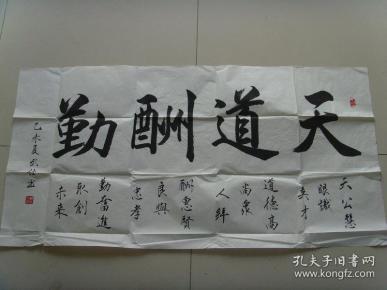 天道酬勤
天公慧
眼識
英才
道德高
尚眾
人拜
酬惠賢
良與
忠孝
勤奮進
取創
未來
乙未夏
孔夫子旧书网